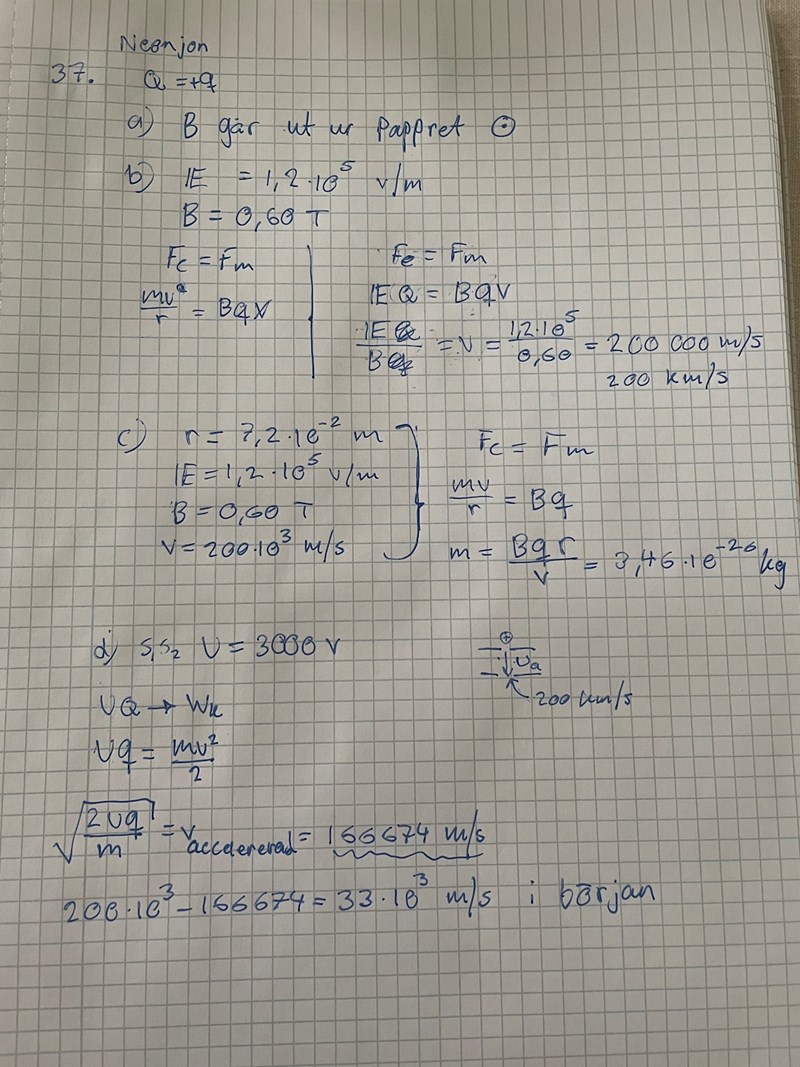 Neonjon
37. Q = +q
a) B går ut ur Pappret ⊙
b) |E = 1,2·10⁵ v/m
B = 0,60 T
Fc = Fm
mv²/r = BqV
Fe = Fm
|E Q = BqV
|E Q/BQ = V = 1,2·10⁵/0,60 = 200 000 m/s
200 km/s
c) r = 7,2·10⁻² m
|E = 1,2·10⁵ v/m
B = 0,60 T
V = 200·10³ m/s
Fc = Fm
mv/r = Bq
m = Bqr/v = 3,46·10⁻²⁶ kg
d) S₁S₂ U = 3000 V
⊕
Ua
200 km/s
UQ → Wk
Uq = mv²/2
√(2Uq/m) = v accelererad = 166674 m/s
200·10³ − 166674 = 33·10³ m/s i början